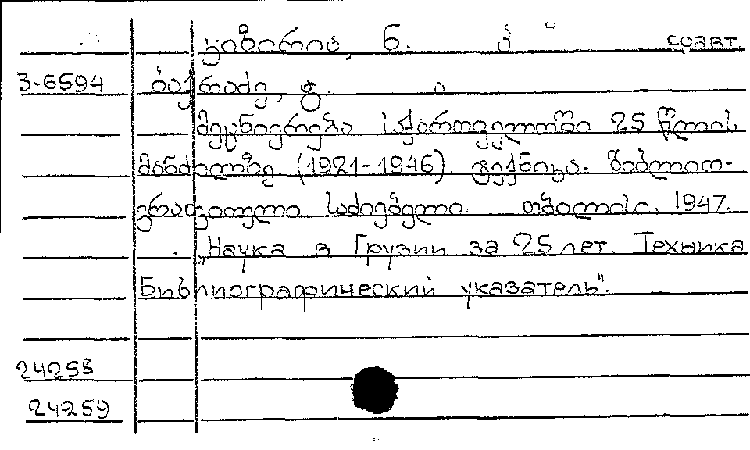 ყიზირია, ნ. соавт.
3-6594 ბაქრაძე, ვ.
მეცნიერება საქართველოში 25 წლის
მანძილზე (1921-1946) ტექნიკა. ბიბლიო-
გრაფიული საძიებელი. თბილისი, 1947.
„Наука в Грузии за 25 лет. Техника
Библиографический указатель".
24253
24259